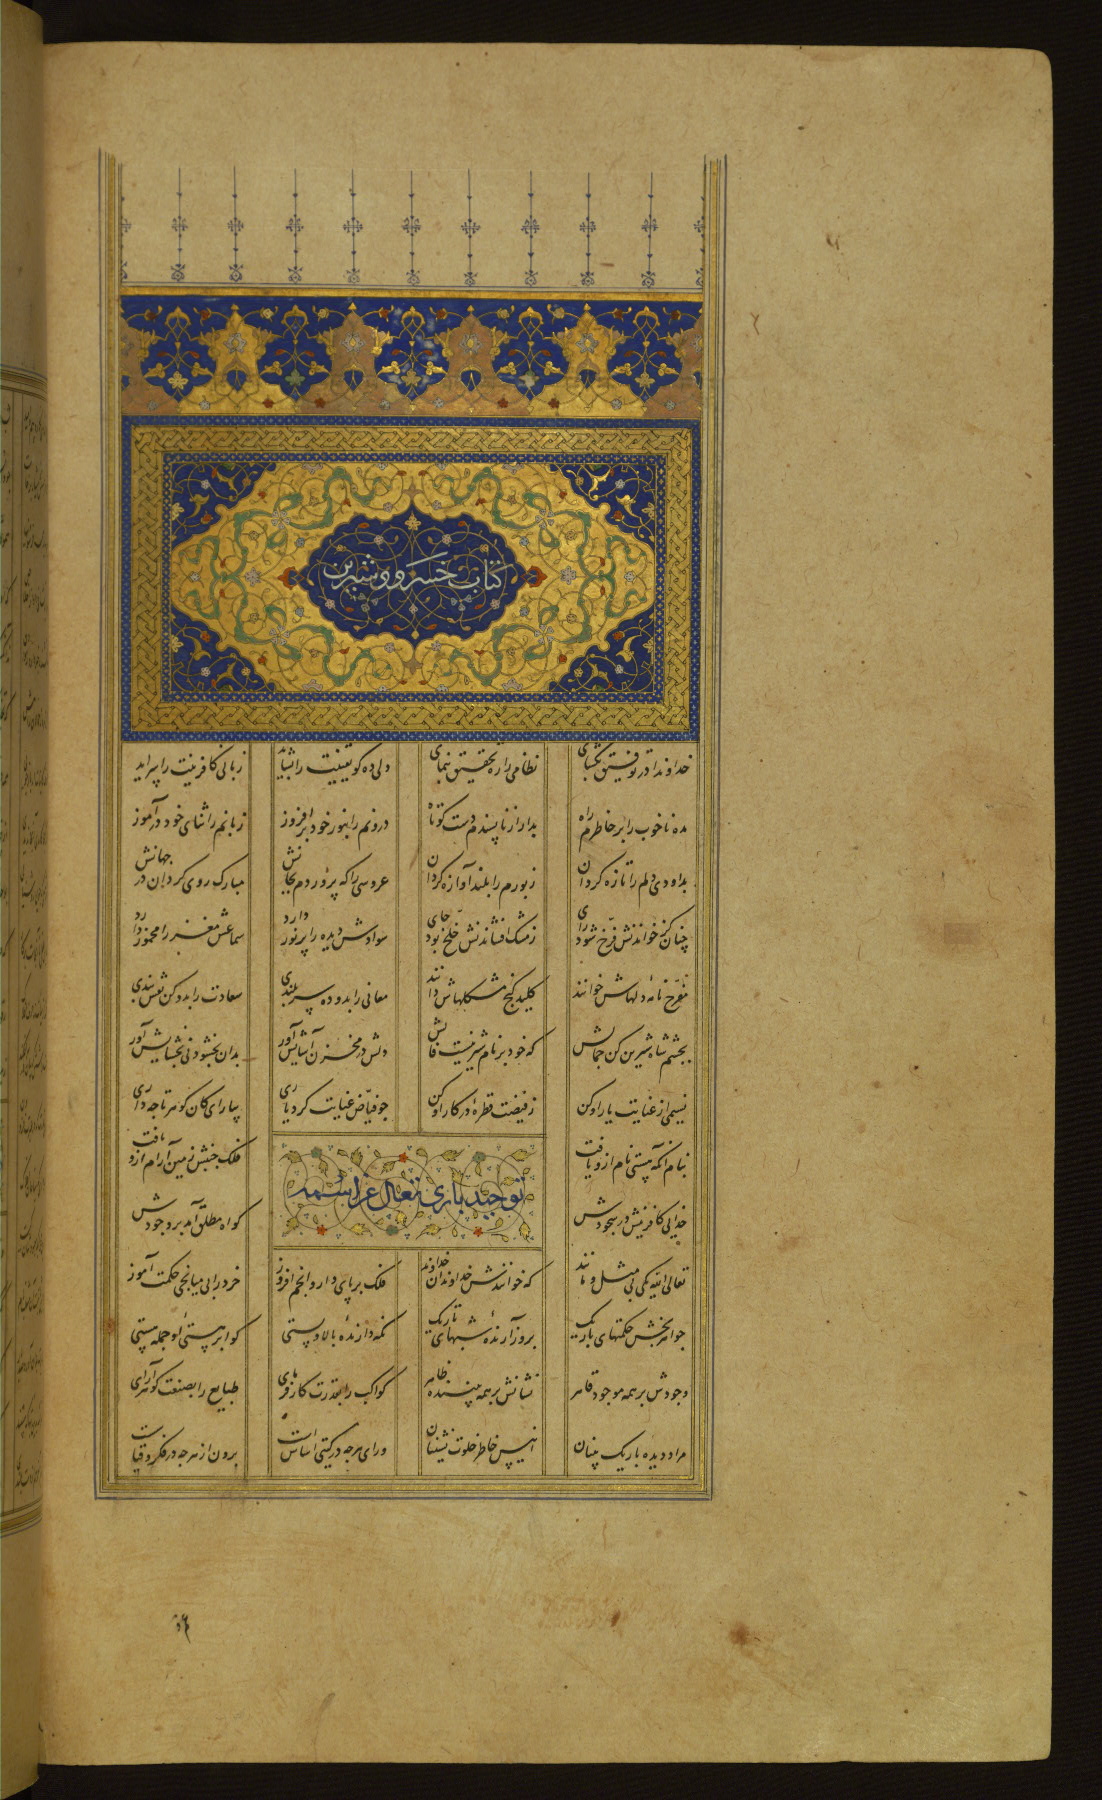 کتاب خسرو و شیرین
خداوندا در توفیق بگشای نظامی را ره تحقیق بنمای دلی ده کو یقینت را بشاید زبانی کافرینت را سراید
مده ناخوب را بر خاطرم راه بدار از ناپسندم دست کوتاه درونم را بنور خود برافروز زبانم را ثنای خود درآموز
بداودی دلم را تازه گردان زبورم را بلند آوازه گردان عروسی را که پروردم بجانش مبارک روی گردان در جهانش
چنان کز خواندنش فرخ شود رای ز مشک افشاندنش خلخ بود جای سوادش دیده را پرنور دارد سماعش مغز را مخمور دارد
مفرح نامه دلهاش خوانند کلید گنج مشکلهاش دانند معانی را بدو ده سربلندی سعادت را بدو کن نقش بندی
بچشم شاه شیرین کن جمالش که خود بر نام شیرینست فالش
نسیمی از عنایت یار او کن ز فیضت قطرهٔ در کار او کن چو فیاض عنایت کرد یاری بیارای کان گوهر تا چه داری
توحید باری تعالی عز اسمه
بنام آنکه هستی نام ازو یافت فلک جنبش زمین آرام ازو یافت
خدایی کافرینش در سجودش گواه مطلق آمد بر وجودش
تعالی الله یکی بی مثل و مانند که خوانندش خداوندان خداوند فلک بر پای دار و انجم افروز خرد را بی میانجی حکمت آموز
جواهر بخش حکمتهای باریک بروز آرنده شبهای تاریک نگه دارندهٔ بالا و پستی گوا بر هستی او جمله هستی
وجودش بر همه موجود قاهر نشانش بر همه بیننده ظاهر کواکب را بقدرت کار فرمای طبایع را بصنعت گوهرآرای
مراد دیده باریک بینان انیس خاطر خلوت نشینان ورای هرچه در گیتی اساس است برون از هرچه در فکر و قیاس است